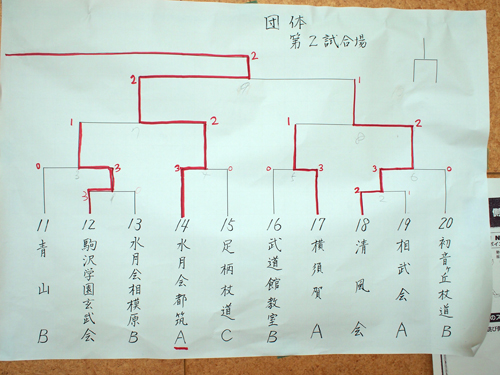 団体
第2試合場
2
2 1
1 2 1 2
0 3 3 0 0 3 3 0
3 2 1
11 青山 B
12 駒沢学園玄武会
13 水月会相模原 B
14 水月会都筑 A
15 足柄杖道 C
16 武道館教室 B
17 横須賀 A
18 清風会
19 相武会 A
20 初音ヶ丘杖道 B